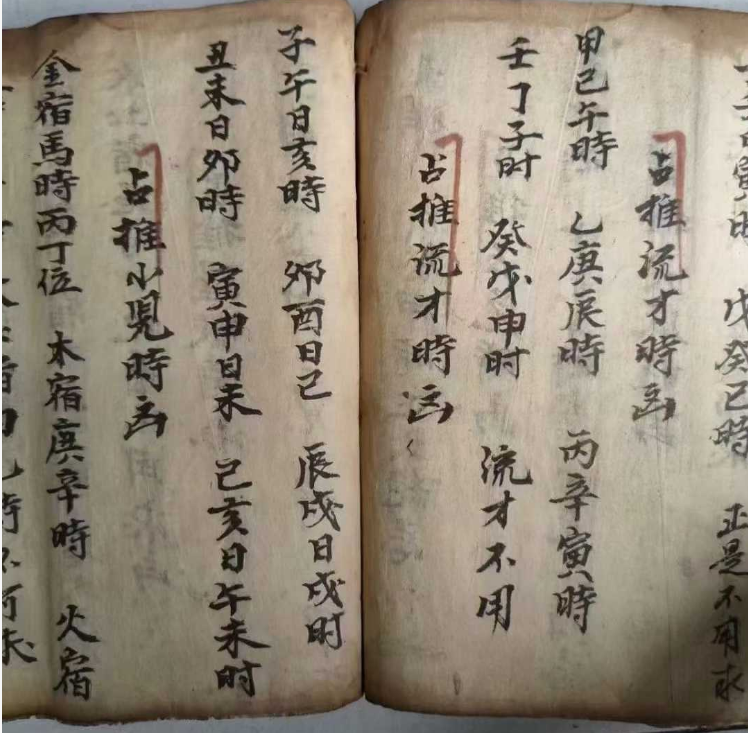 寅时 戊癸巳時 正是不用求
占推流才時凶
甲己午時 乙庚辰時 丙辛寅時
壬丁子时 癸戊申时 流才不用
占推流才時凶
子午日亥時 卯酉日己 辰戌日戌时
丑未日卯時 寅申日未 己亥日午未时
占推小児時凶
金宿馬時丙丁位 木宿庚辛時 火宿